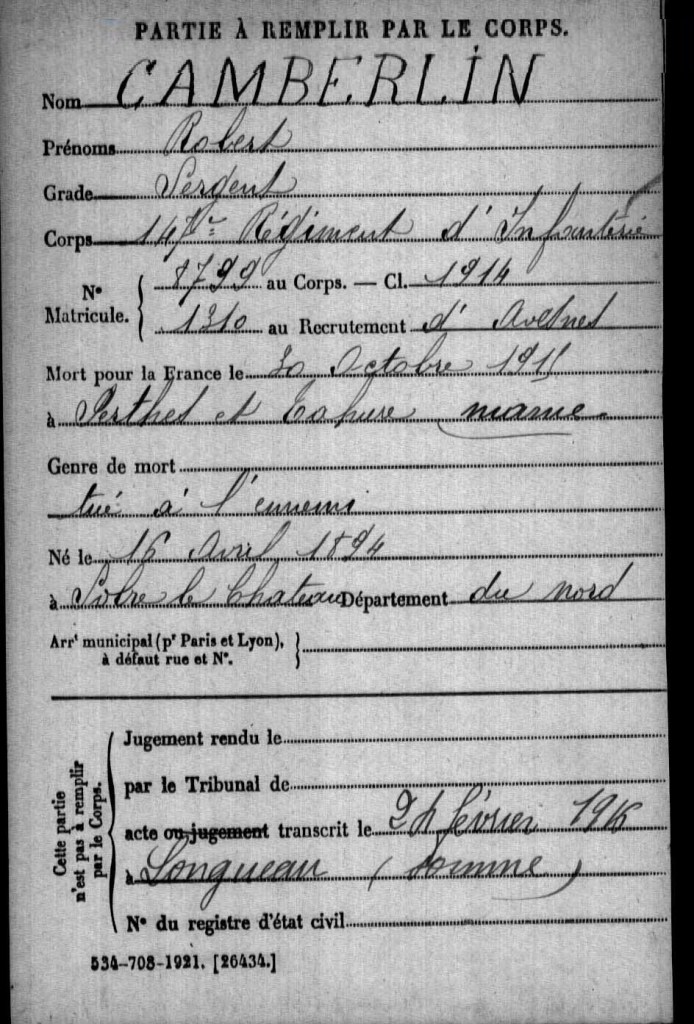 PARTIE À REMPLIR PAR LE CORPS.
Nom CAMBERLIN
Prénoms Robert
Grade Sergent
Corps 147e Régiment d'Infanterie
N° Matricule. { 8799 au Corps. — Cl. 1914
1310 au Recrutement d'Avesnes
Mort pour la France le 30 Octobre 1915
à Perthes et Tahure marne
Genre de mort
tué à l'ennemi
Né le 16 Avril 1894
à Solre le Chateau Département du nord
Arrt municipal (pr Paris et Lyon), à défaut rue et N°. }
Cette partie n'est pas à remplir par le Corps.
Jugement rendu le
par le Tribunal de
acte ou jugement transcrit le 24 février 1916
à Longueau (Somme)
N° du registre d'état civil
534-708-1921. [26434.]